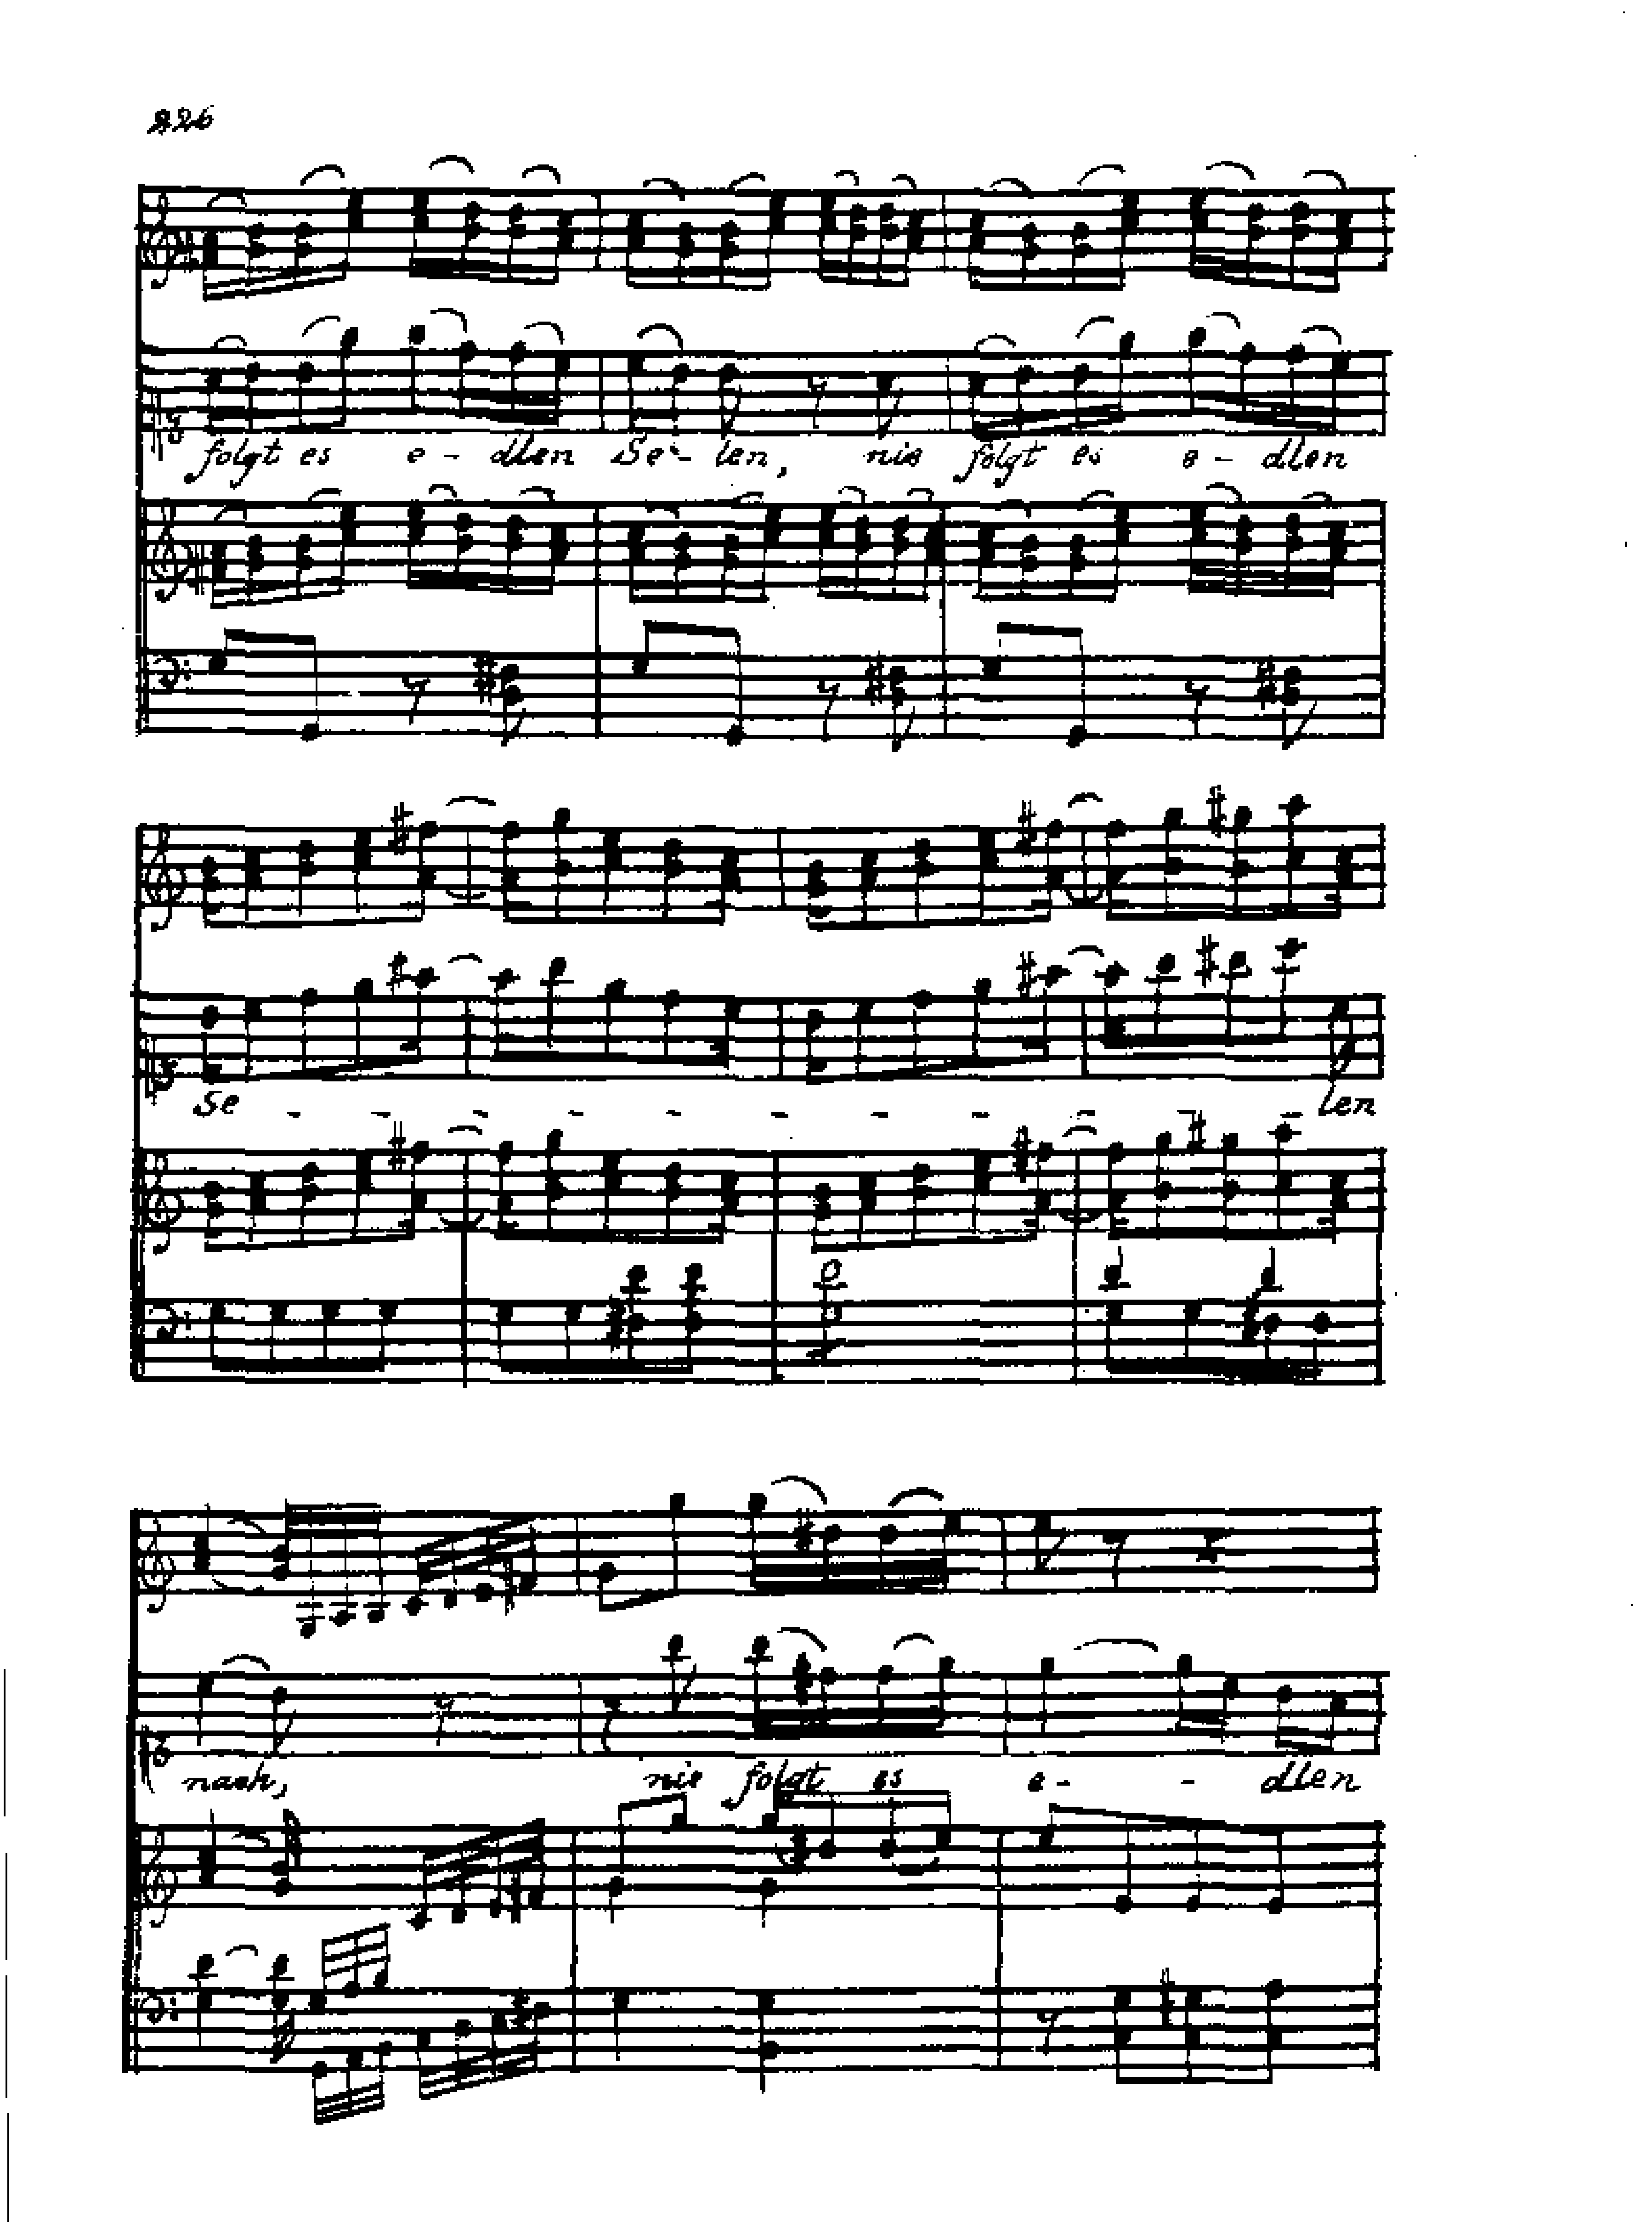 226
folgt es e - dlen Se - len, nie folgt es e - dlen
Se - - - - - - - - - - - - len
nach, nie folgt es e - - dlen